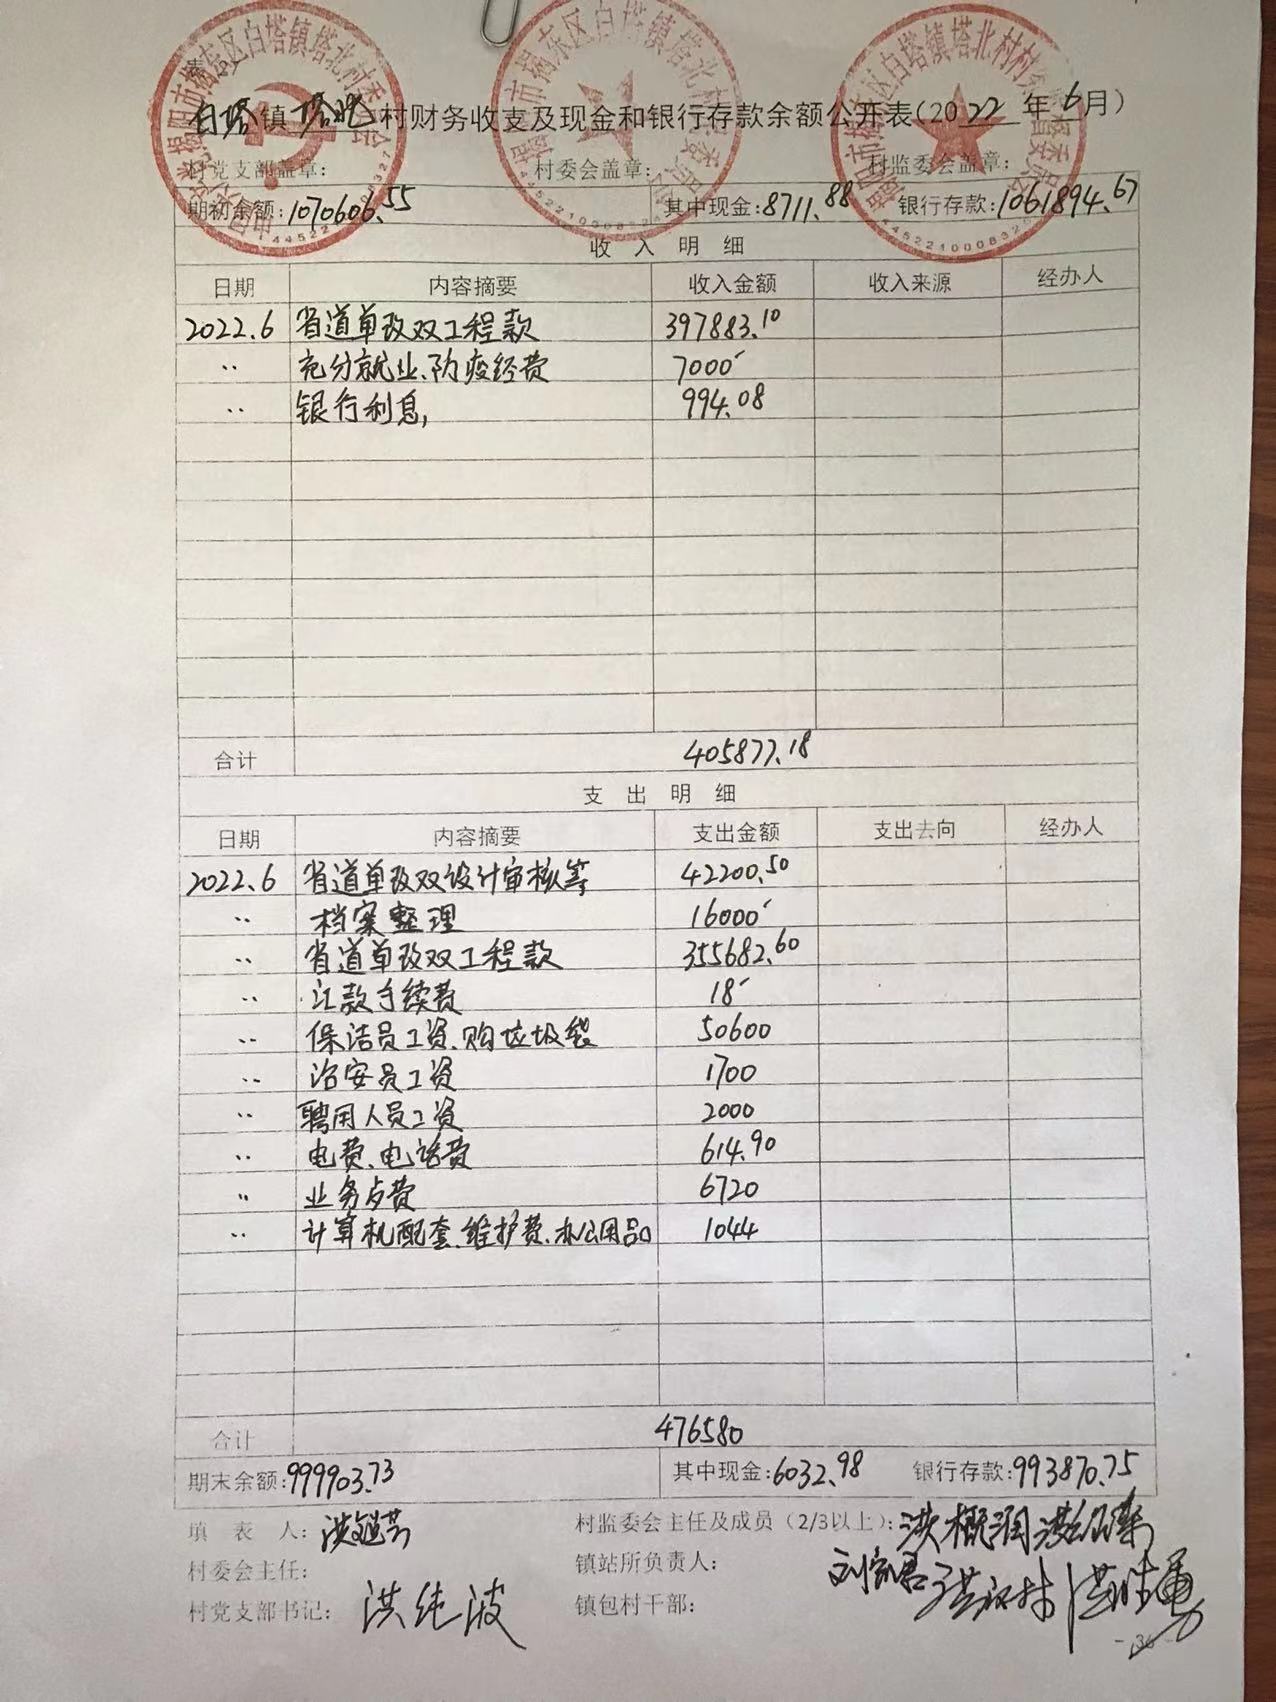 白塔镇塔北村财务收支及现金和银行存款余额公开表(2022年6月)
村党支部盖章: 村委会盖章: 村监委会盖章:
期初余额:1070606.55 其中现金:8711.88 银行存款:1061894.67
收入明细
日期 内容摘要 收入金额 收入来源 经办人
2022.6 省道单改双工程款 397883.10
〃 充分就业、防疫经费 7000
〃 银行利息, 994.08
合计 405877.18
支出明细
日期 内容摘要 支出金额 支出去向 经办人
2022.6 省道单改双设计审核等 42200.50
〃 档案整理 16000
〃 省道单改双工程款 355682.60
〃 汇款手续费 18
〃 保洁员工资、购垃圾袋 50600
〃 治安员工资 1700
〃 聘用人员工资 2000
〃 电费、电话费 614.90
〃 业务占费 6720
〃 计算机配套、维护费、办公用品 1044
合计 476580
期末余额:999903.73 其中现金:6032.98 银行存款:993870.75
填表人: 村监委会主任及成员(2/3以上):洪概润
村委会主任: 镇站所负责人:
村党支部书记:洪纯波 镇包村干部:
- 36 -